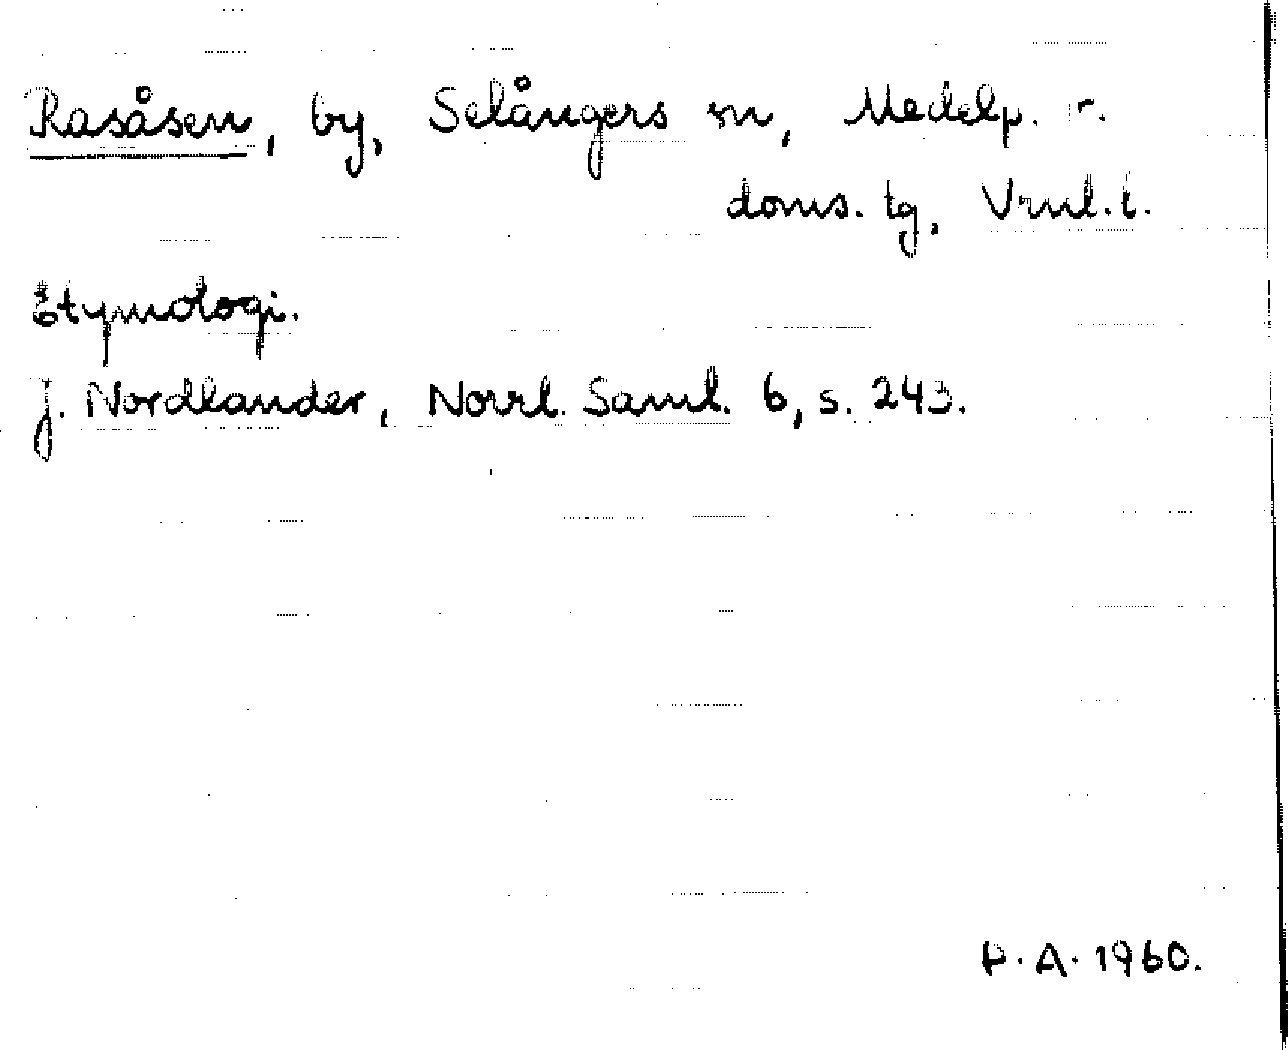 Rasåsen, by, Selångers sn, Medelp. r.
doms. tg, Vrnl. l.
Etymologi.
J. Nordlander, Norrl. Saml. 6, s. 243.
P. A. 1960.